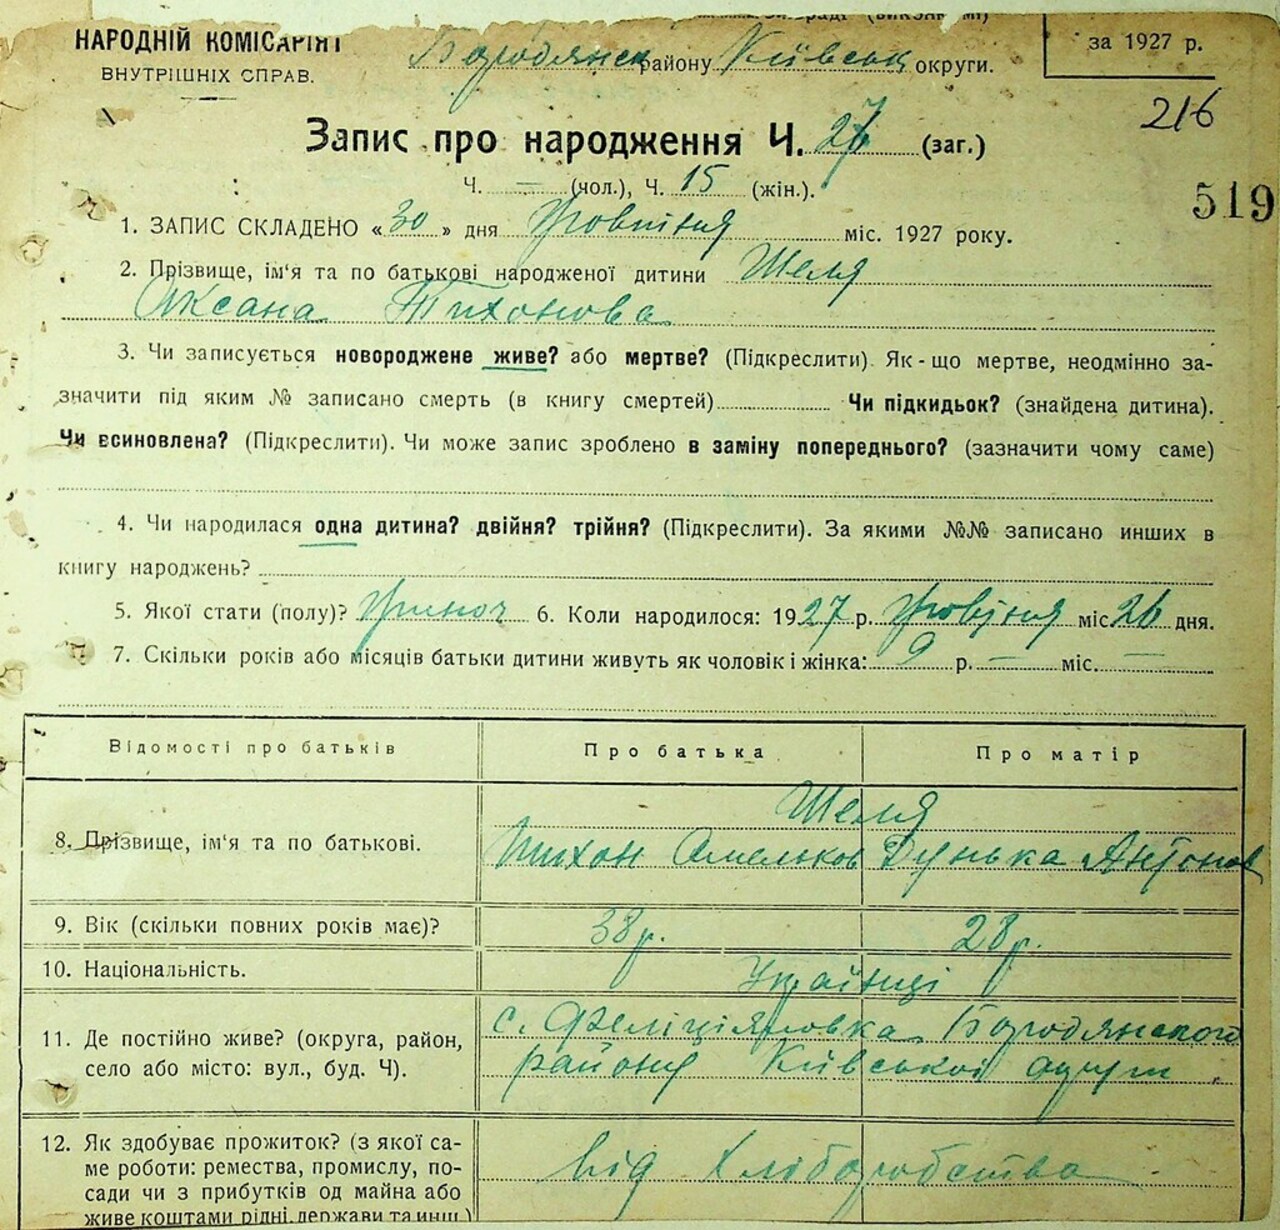 НАРОДНІЙ КОМІСАРІЯТ
ВНУТРІШНІХ СПРАВ.
Бородянск району Київськ округи.
за 1927 р.
216
Запис про народження Ч. 27 (заг.)
Ч. — (чол.), Ч. 15 (жін.).
519
1. ЗАПИС СКЛАДЕНО «30» дня Жовтня міс. 1927 року.
2. Прізвище, ім'я та по батькові народженої дитини Шеля
Оксана Тихонова
3. Чи записується новороджене живе? або мертве? (Підкреслити). Як-що мертве, неодмінно за-
значити під яким № записано смерть (в книгу смертей) Чи підкидьок? (знайдена дитина).
Чи всиновлена? (Підкреслити). Чи може запис зроблено в заміну попереднього? (зазначити чому саме)
4. Чи народилася одна дитина? двійня? трійня? (Підкреслити). За якими №№ записано инших в
книгу народжень?
5. Якої стати (полу)? Жіноч 6. Коли народилося: 1927 р. Жовтня міс. 26 дня.
7. Скільки років або місяців батьки дитини живуть як чоловік і жінка: 9 р. — міс. —
Відомості про батьків Про батька Про матір
Шеля
8. Прізвище, ім'я та по батькові. Тихон Омельков Дунька Антонов
9. Вік (скільки повних років має)? 38 р. 28 р.
10. Національність. Українці
11. Де постійно живе? (округа, район, с. Феліціяновка Бородянского
село або місто: вул., буд. Ч). району Київської округи
12. Як здобуває прожиток? (з якої са-
ме роботи: ремества, промислу, по- від Хліборобства
сади чи з прибутків од майна або
живе коштами рідні, держави та инш.)